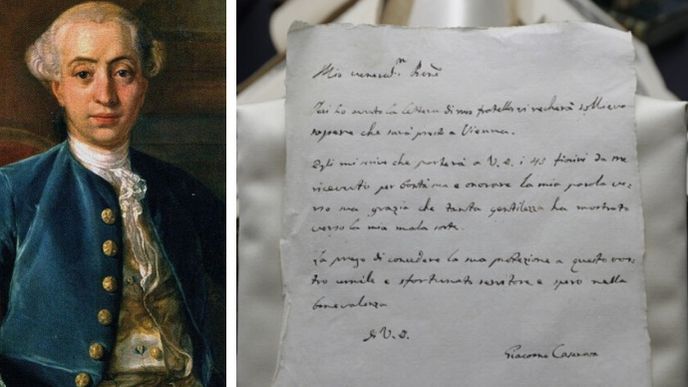 Mio venerad.m
ho avuto la lettera di mio fratello vi recherà sollievo
sapere che sarà presto a Vienna.
Egli mi che porterà a V. S. i fiorini da me
ricevuto per e onorare la mia parola ver
so sua grazia che tanta gentilezza ha mostrato
verso la mia mala sorte.
La prego di concedere la sua protezione a questo vos
tro umile e sfortunato servitore e spero nella
benevolenza
di V. S.
Giacomo Casanova